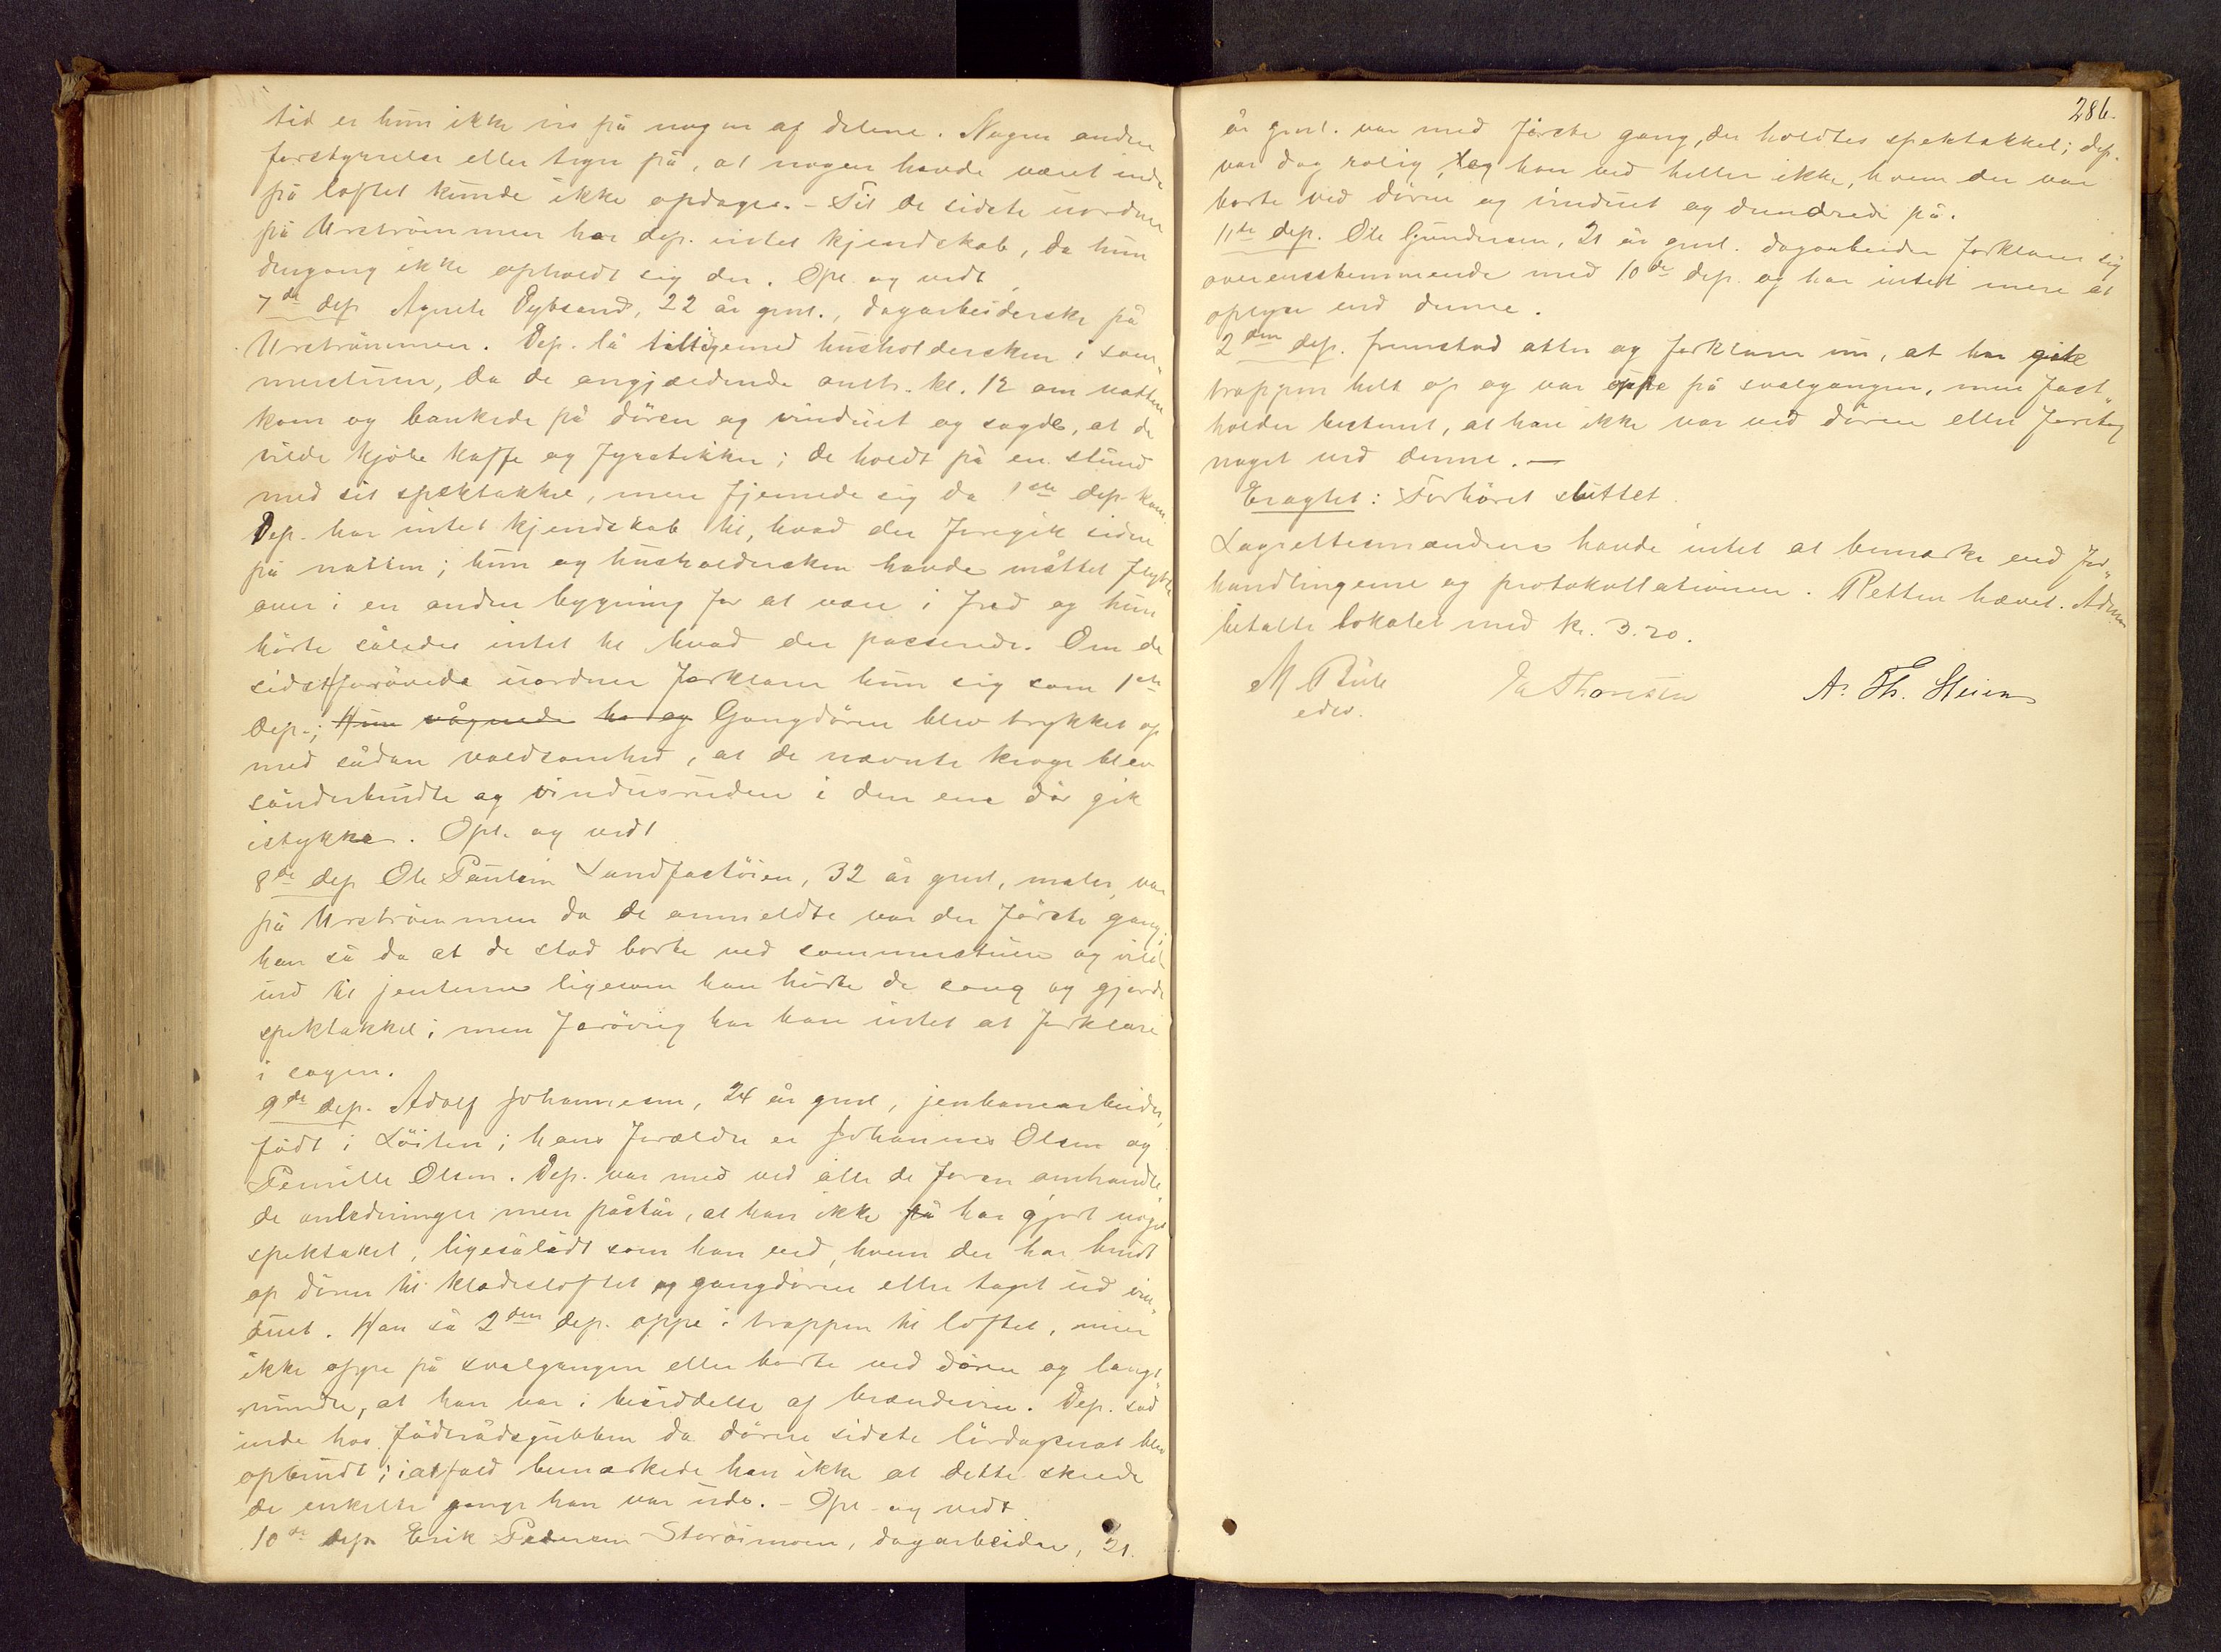 tid er hun ikke vis på nogen af delene. Nogen anden
forstyrrelse eller tegn på, at nogen havde været inde
på loftet kunde ikke opdages. – Til de sidste uordner
på Urstrømmen har dep. intet kjendskab, da hun
dengang ikke opholdt sig der. Opl. og vedt.
7de dep Agnete Dybsand, 22 år gml., dagarbeiderske på
Urstrømmen. Dep. lå tilligemed husholdersken i som„
merstuen, da de angjældende anth. kl. 12 om natten
kom og bankede på døren og vinduet og sagde, at de
vilde kjøbe kaffe og fyrstikker; de holdt på en stund
med sit spektakkel, men fjernede sig da 1ste dep. kom.
Dep. har intet kjendskab til, hvad der foregik siden
på natten; hun og husholdersken havde måttet flytte
over i en anden bygning for at være i fred og hun
hørte således intet til hvad der passerede. Om de
sidstforøvede uordner forklarer hun sig som 1ste
dep.; Hun vågnede ho og Gangdøren blev trykket op
med sådan voldsomhed, at de nævnte kroge blev
sønderbrudte og vindusruden i den ene dør gik
istykker. Opl. og vedt
8de dep Ole Paulsen Sandfastøien, 32 år gml, maler, var
på Urstrømmen da de anmeldte var der første gang;
han så da at de stod borte ved sommerstuen og vilde
ind til jenterne ligesom han hørte de sang og gjorde
spektakkel; men forøvrig har han intet at forklare
i sagen.
9de dep. Adolf Johannesen, 24 år gml, jenbanearbeider,
født i Løiten; hans forældre er Johannes Olsen og
Pernille Olsen. Dep. var med ved alle de foran omhandle„
de anledninger men påstår, at han ikke på har gjort noget
spektakel, ligesålidt som han ved, hvem der har brudt
op døren til klædesloftet og gangdøren eller taget ud vin„
duet. Han så 2den dep. oppe i trappen til loftet, men
ikke oppe på svalgangen eller borte ved døren og langt
mindre, at han var i besiddelse af brændevin. Dep. sad
inde hos føderådsgubben da døren sidste lørdagsnat blev
opbrudt; ialfald bemærkede han ikke at dette skede
de enkelte gange han var ude. – Opl. og vedt.
10de dep Erik Pedersen Storøimoen, dagarbeider, 21.
286.
år gml. var med første gang, der holdtes spektakkel; dep.
var dog rolig, og han ved heller ikke, hvem der var
borte ved døren og vinduet og dundrede på.
11te dep. Ole Gundersen, 21 år gml. dagarbeider forklarer sig
overensstemmende med 10de dep. og har intet mere at
oplyse end denne.
2den dep. fremstod atter og forklarer nu, at han gik
trappen helt op og var oppe på svalgangen, men fast„
holder bestemt, at han ikke var ved døren eller foretog
noget ved denne. —
Eragtet: Forhøret sluttet.
Lagrettesmændene havde intet at bemærke ved for„
handlingerne og protokollationen. Retten hævet. Adm.
betalte lokalet med kr. 3.20.
M Bull
edsv.
Thoresen
A. Th. Steien